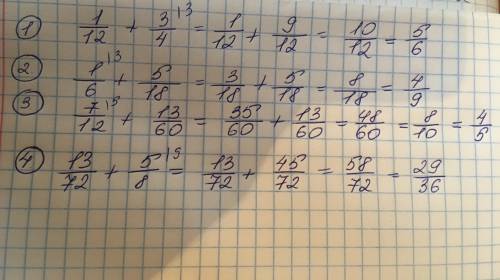 ① 1/12 + 3/4 ⁽³ = 1/12 + 9/12 = 10/12 = 5/6
② 1/6 ⁽³ + 5/18 = 3/18 + 5/18 = 8/18 = 4/9
③ 7/12 ⁽⁵ + 13/60 = 35/60 + 13/60 = 48/60 = 8/10 = 4/5
④ 13/72 + 5/8 ⁽⁹ = 13/72 + 45/72 = 58/72 = 29/36